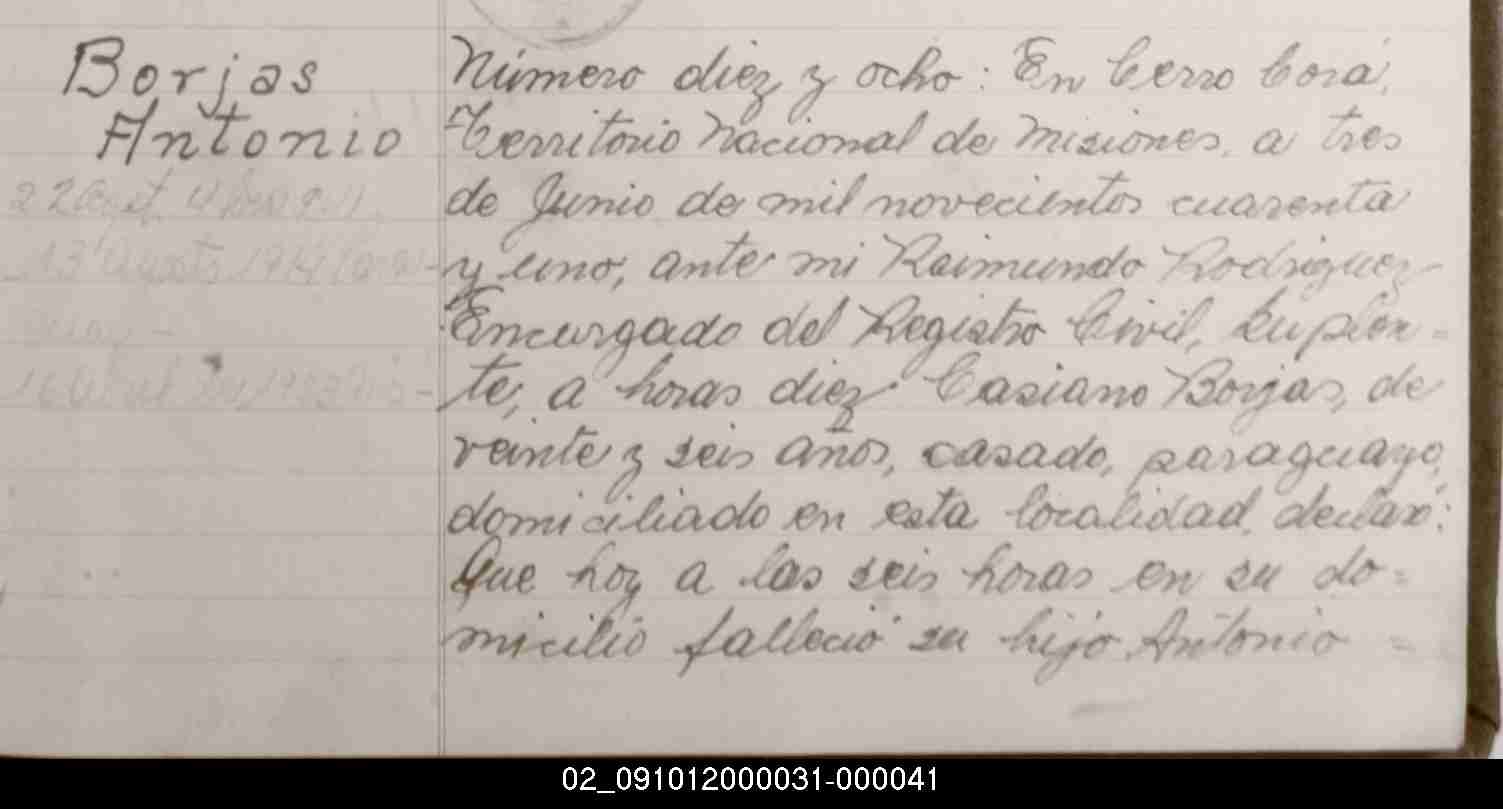 Borjas
Antonio
Número diez y ocho: En Cerro Corá,
Territorio Nacional de Misiones, a tres
de Junio de mil novecientos cuarenta
y uno, ante mi Raimundo Rodriguez
Encargado del Registro Civil, Suplen=
te, a horas diez Casiano Borjas, de
veinte y seis años, casado, paraguayo,
domiciliado en esta localidad, declaró:
Que hoy a las seis horas en su do=
micilio falleció su hijo Antonio =
02_091012000031-000041